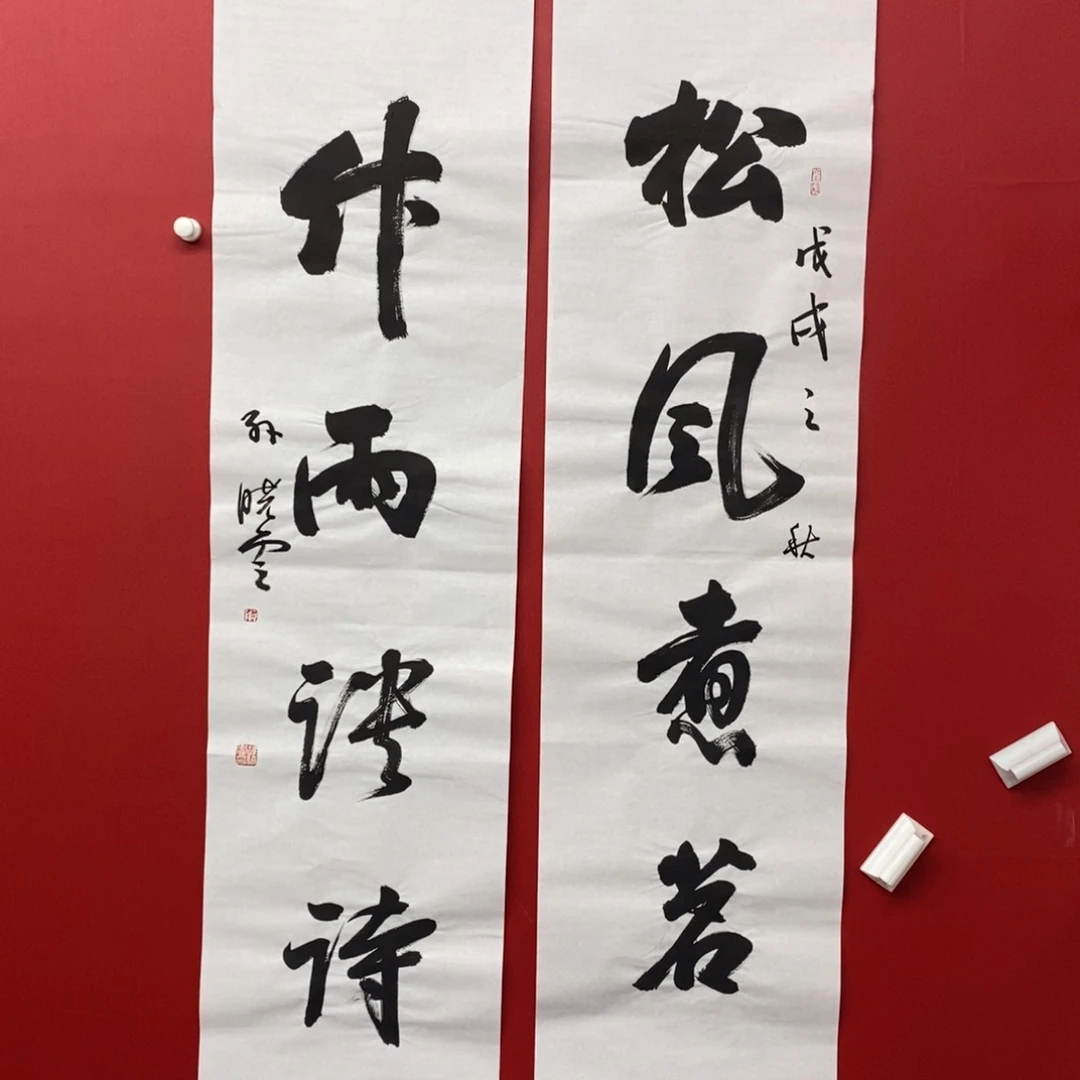 松风煮茗
戊戌之秋
竹雨谈诗
孙晓雲